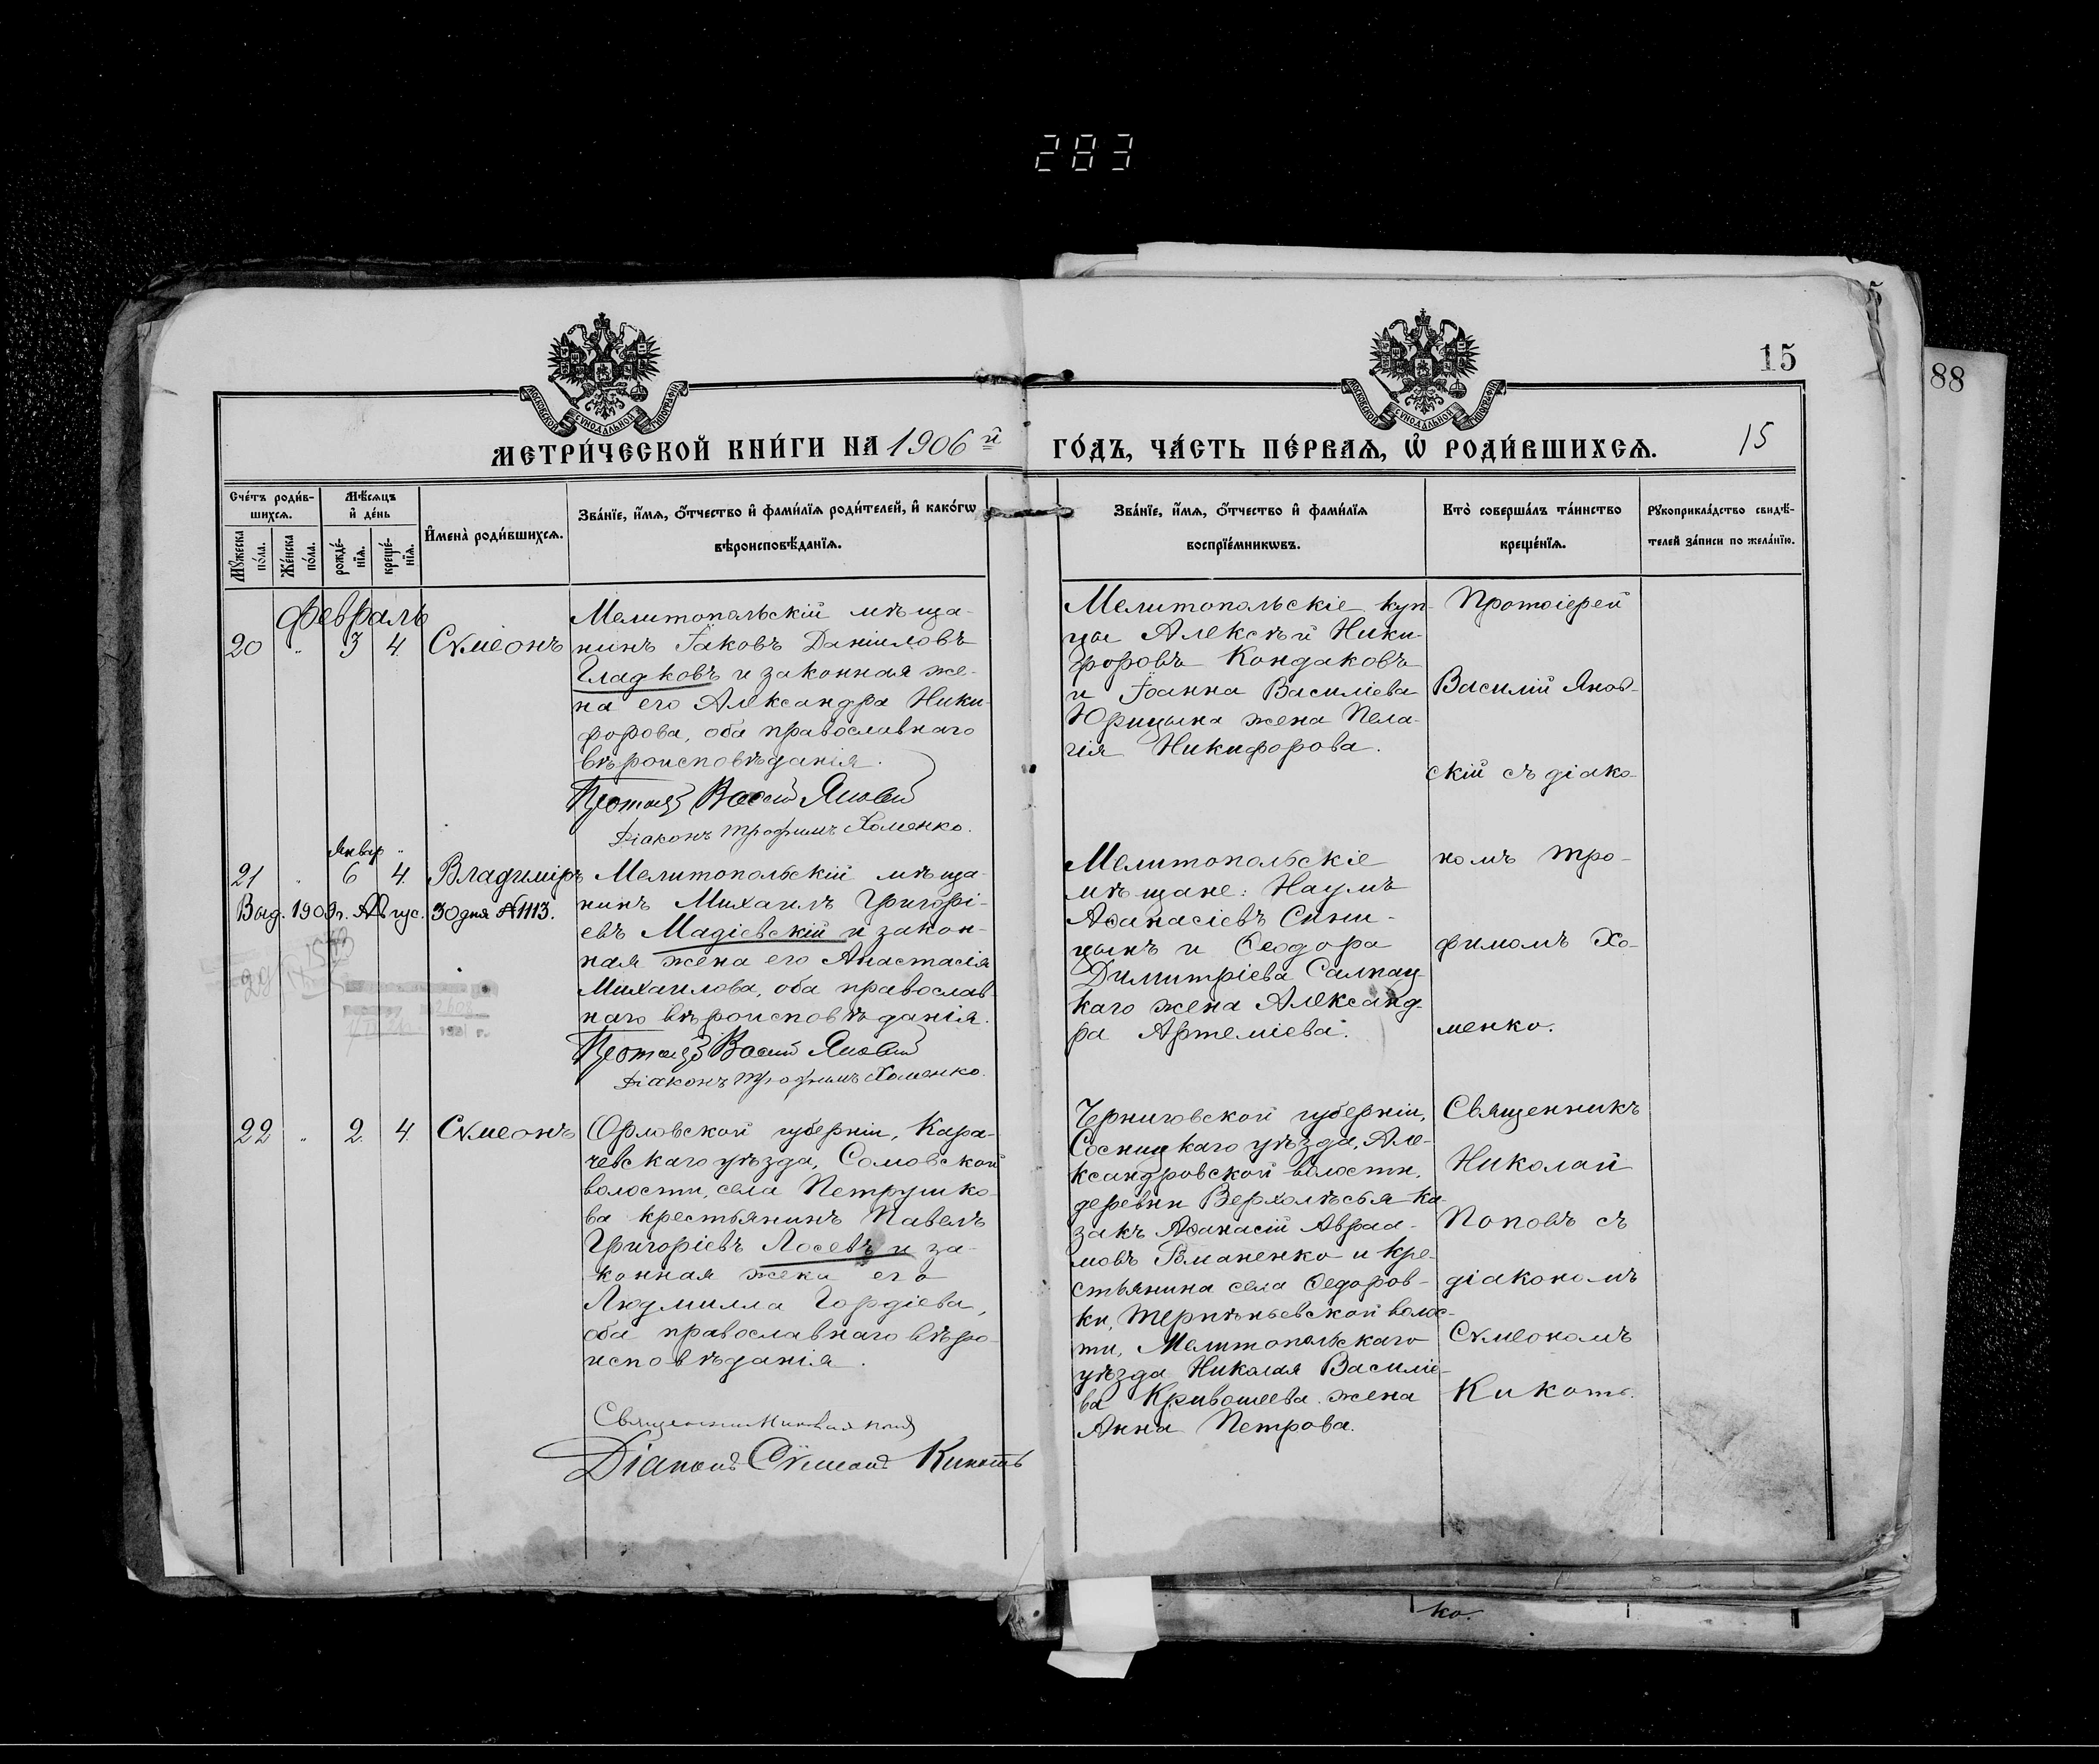 283
15
88
МЕТРИ́ЧЕСКОЙ КНИ́ГИ НА 1906й
ГО́ДЪ, ЧА́СТЬ ПЕ́РВАѦ, Ѡ҆ РОДИ́ВШИХСѦ.
15
Сче́тъ роди́в-
шихсѧ.
Мѣ́сѧцъ
и҆ де́нь
Мꙋ́жеска
по́ла.
Же́нска
по́ла.
рожде́-
нїѧ.
креще́-
нїѧ.
И҆мена̀ роди́вшихсѧ.
Зва́нїе, и҆́мѧ, ѻ҆́тчество и҆ фами́лїѧ роди́телей, и҆ како́гѡ
вѣроисповѣ́данїѧ.
Зва́нїе, и҆́мѧ, ѻ҆́тчество и҆ фами́лїѧ
воспрїе́мникѡвъ.
Кто̀ соверша́лъ та́инство
креще́нїѧ.
Рꙋкоприкла́дство свидѣ́-
телей за́писи по жела́нїю.
Февраль
20 " 3 4. Сѵмеонъ
Мелитопольскій мѣща-
нинъ Іаковъ Даніиловъ
Гладковъ и законная же-
на его Александра Ники-
форова, оба православнаго
вѣроисповѣданія.
Діаконъ Трофимъ Хоменко.
Мелитопольскіе куп-
цы Алексѣй Ники-
форовъ Кондаковъ
и Іоанна Василіева
Юрицына жена Пела-
гія Никифорова.
Протоіерей
Василій Янов-
скій съ діако-
Январ "
21 " 6 4. Владиміръ
Выд. 1909 г. Авгус. 30 дня № 1113.
Мелитопольскій мѣща-
нинъ Михаилъ Григорі-
евъ Мадіевскій и закон-
ная жена его Анастасія
Михаилова, оба православ-
наго вѣроисповѣданія.
Діаконъ Трофимъ Хоменко.
Мелитопольскіе
мѣщане: Наумъ
Аѳанасіевъ Сини-
цынъ и Ѳеодора
Димитріева Салпац
каго жена Александ-
ра Артеміева.
номъ Тро-
фимомъ Хо-
менко.
22 " 2. 4. Сѵмеонъ
Орловской губерніи, Кара-
чевскаго уѣзда, Сомовской
волости, села Петрушко-
ва крестьянинъ Павелъ
Григоріевъ Лосевъ и за-
конная жена его
Людмилла Гордіева,
оба православнаго вѣро-
исповѣданія.
Діаконъ Сѵмеонъ Кикоть
Черниговской губерніи,
Сосницкаго уѣзда, Але-
ксандровской волости,
деревни Верхолѣсья ка-
закъ Аѳанасій Авраа-
мовъ Романенко и кре-
стьянина села Ѳедоров-
ки, Терпѣньевской волос-
ти, Мелитопольскаго
уѣзда Николая Василіе-
ва Кривошеева жена
Анна Петрова.
Священникъ
Николай
Поповъ съ
діакономъ
Сѵмеономъ
Кикоть.
ко.